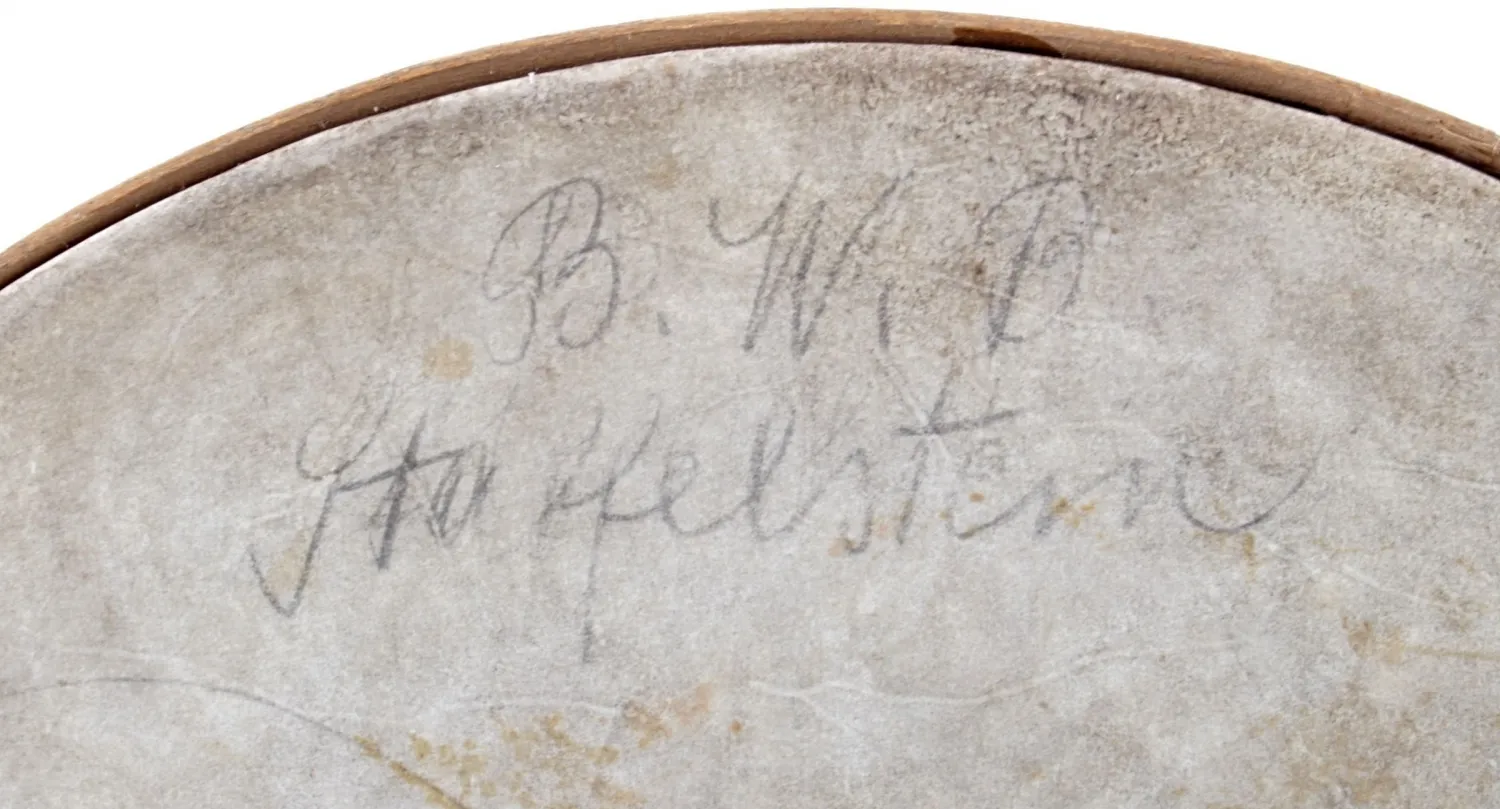 B. W. D.
Staffelstein